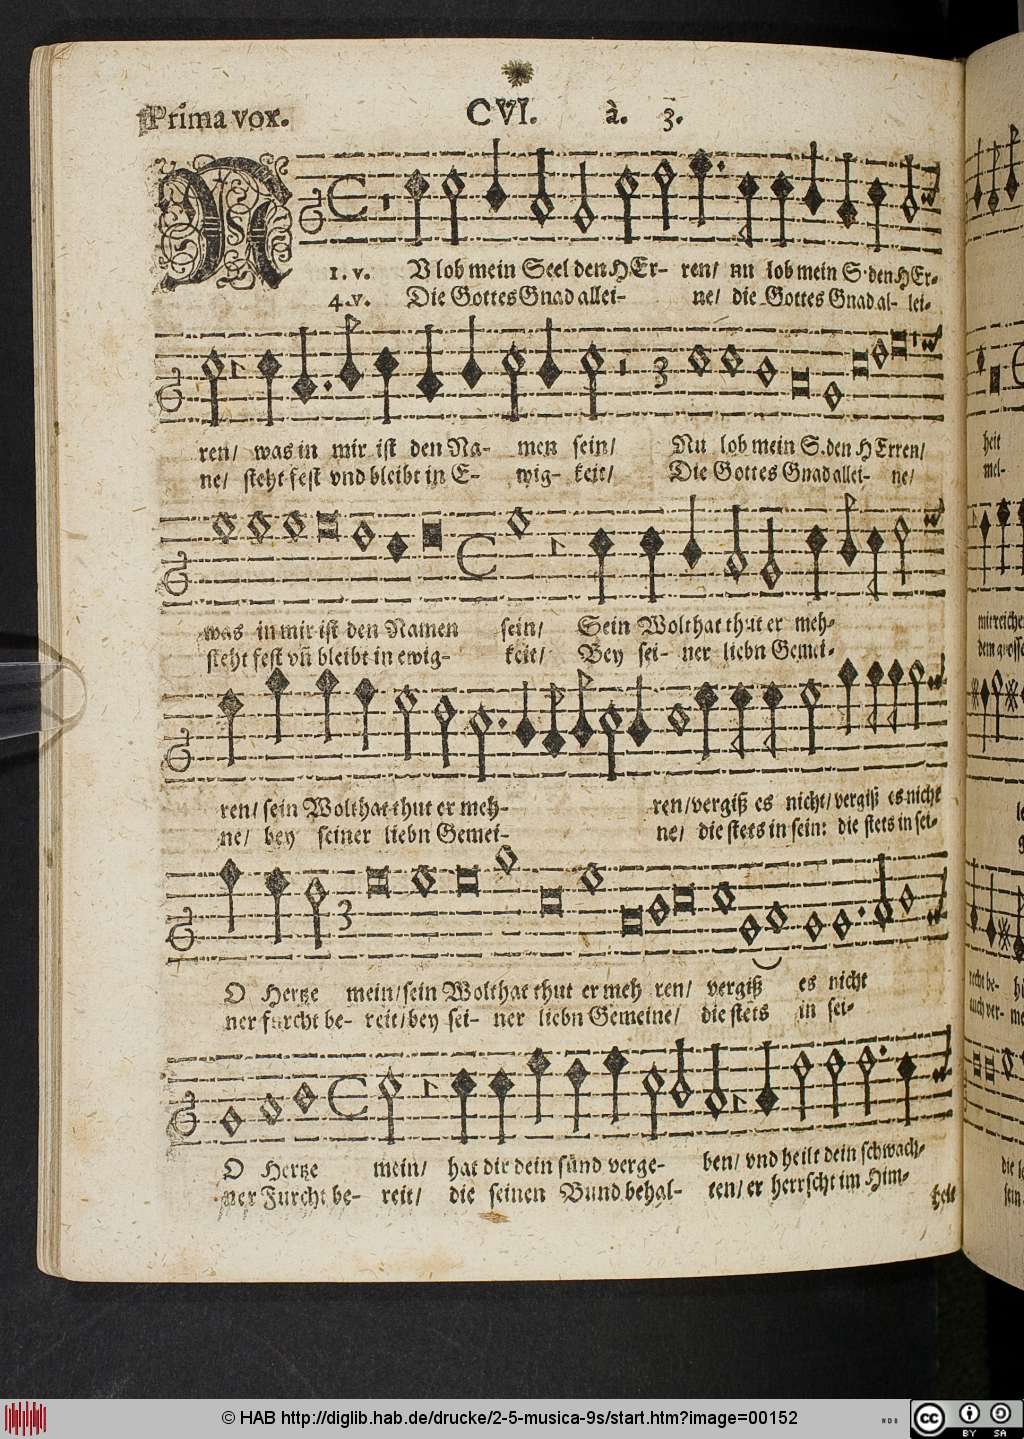 Prima vox. CVI. à. 3.
1. v. NU lob mein Seel den HEr- ren/ nu lob mein S. den HEr-
4. v. Die Gottes Gnad allei- ne/ die Gottes Gnad al- lei-
ren/ was in mir ist den Na- men sein/ Nu lob mein S. den HErren/
ne/ steht fest vnd bleibt in E- wig- keit/ Die Gottes Gnad allei- ne/
was in mir ist den Namen sein/ Sein Wolthat thut er meh-
steht fest vñ bleibt in ewig- keit/ Bey sei- ner liebn Gemei-
ren/ sein Wolthat thut er meh- ren/ vergiß es nicht/ vergiß es nicht
ne/ bey seiner liebn Gemei- ne/ die stets in sein: die stets in sei-
O Hertze mein/ sein Wolthat thut er meh ren/ vergiß es nicht
ner furcht be- reit/ bey sei- ner liebn Gemeine/ die stets in sei-
O Hertze mein/ hat dir dein sünd verge- ben/ vnd heilt dein schwach-
ner Furcht be- reit/ die seinen Bund behal- ten/ er herrscht im Him-
heit
heit
mel-
© HAB http://diglib.hab.de/drucke/2-5-musica-9s/start.htm?image=00152
cc BY SA